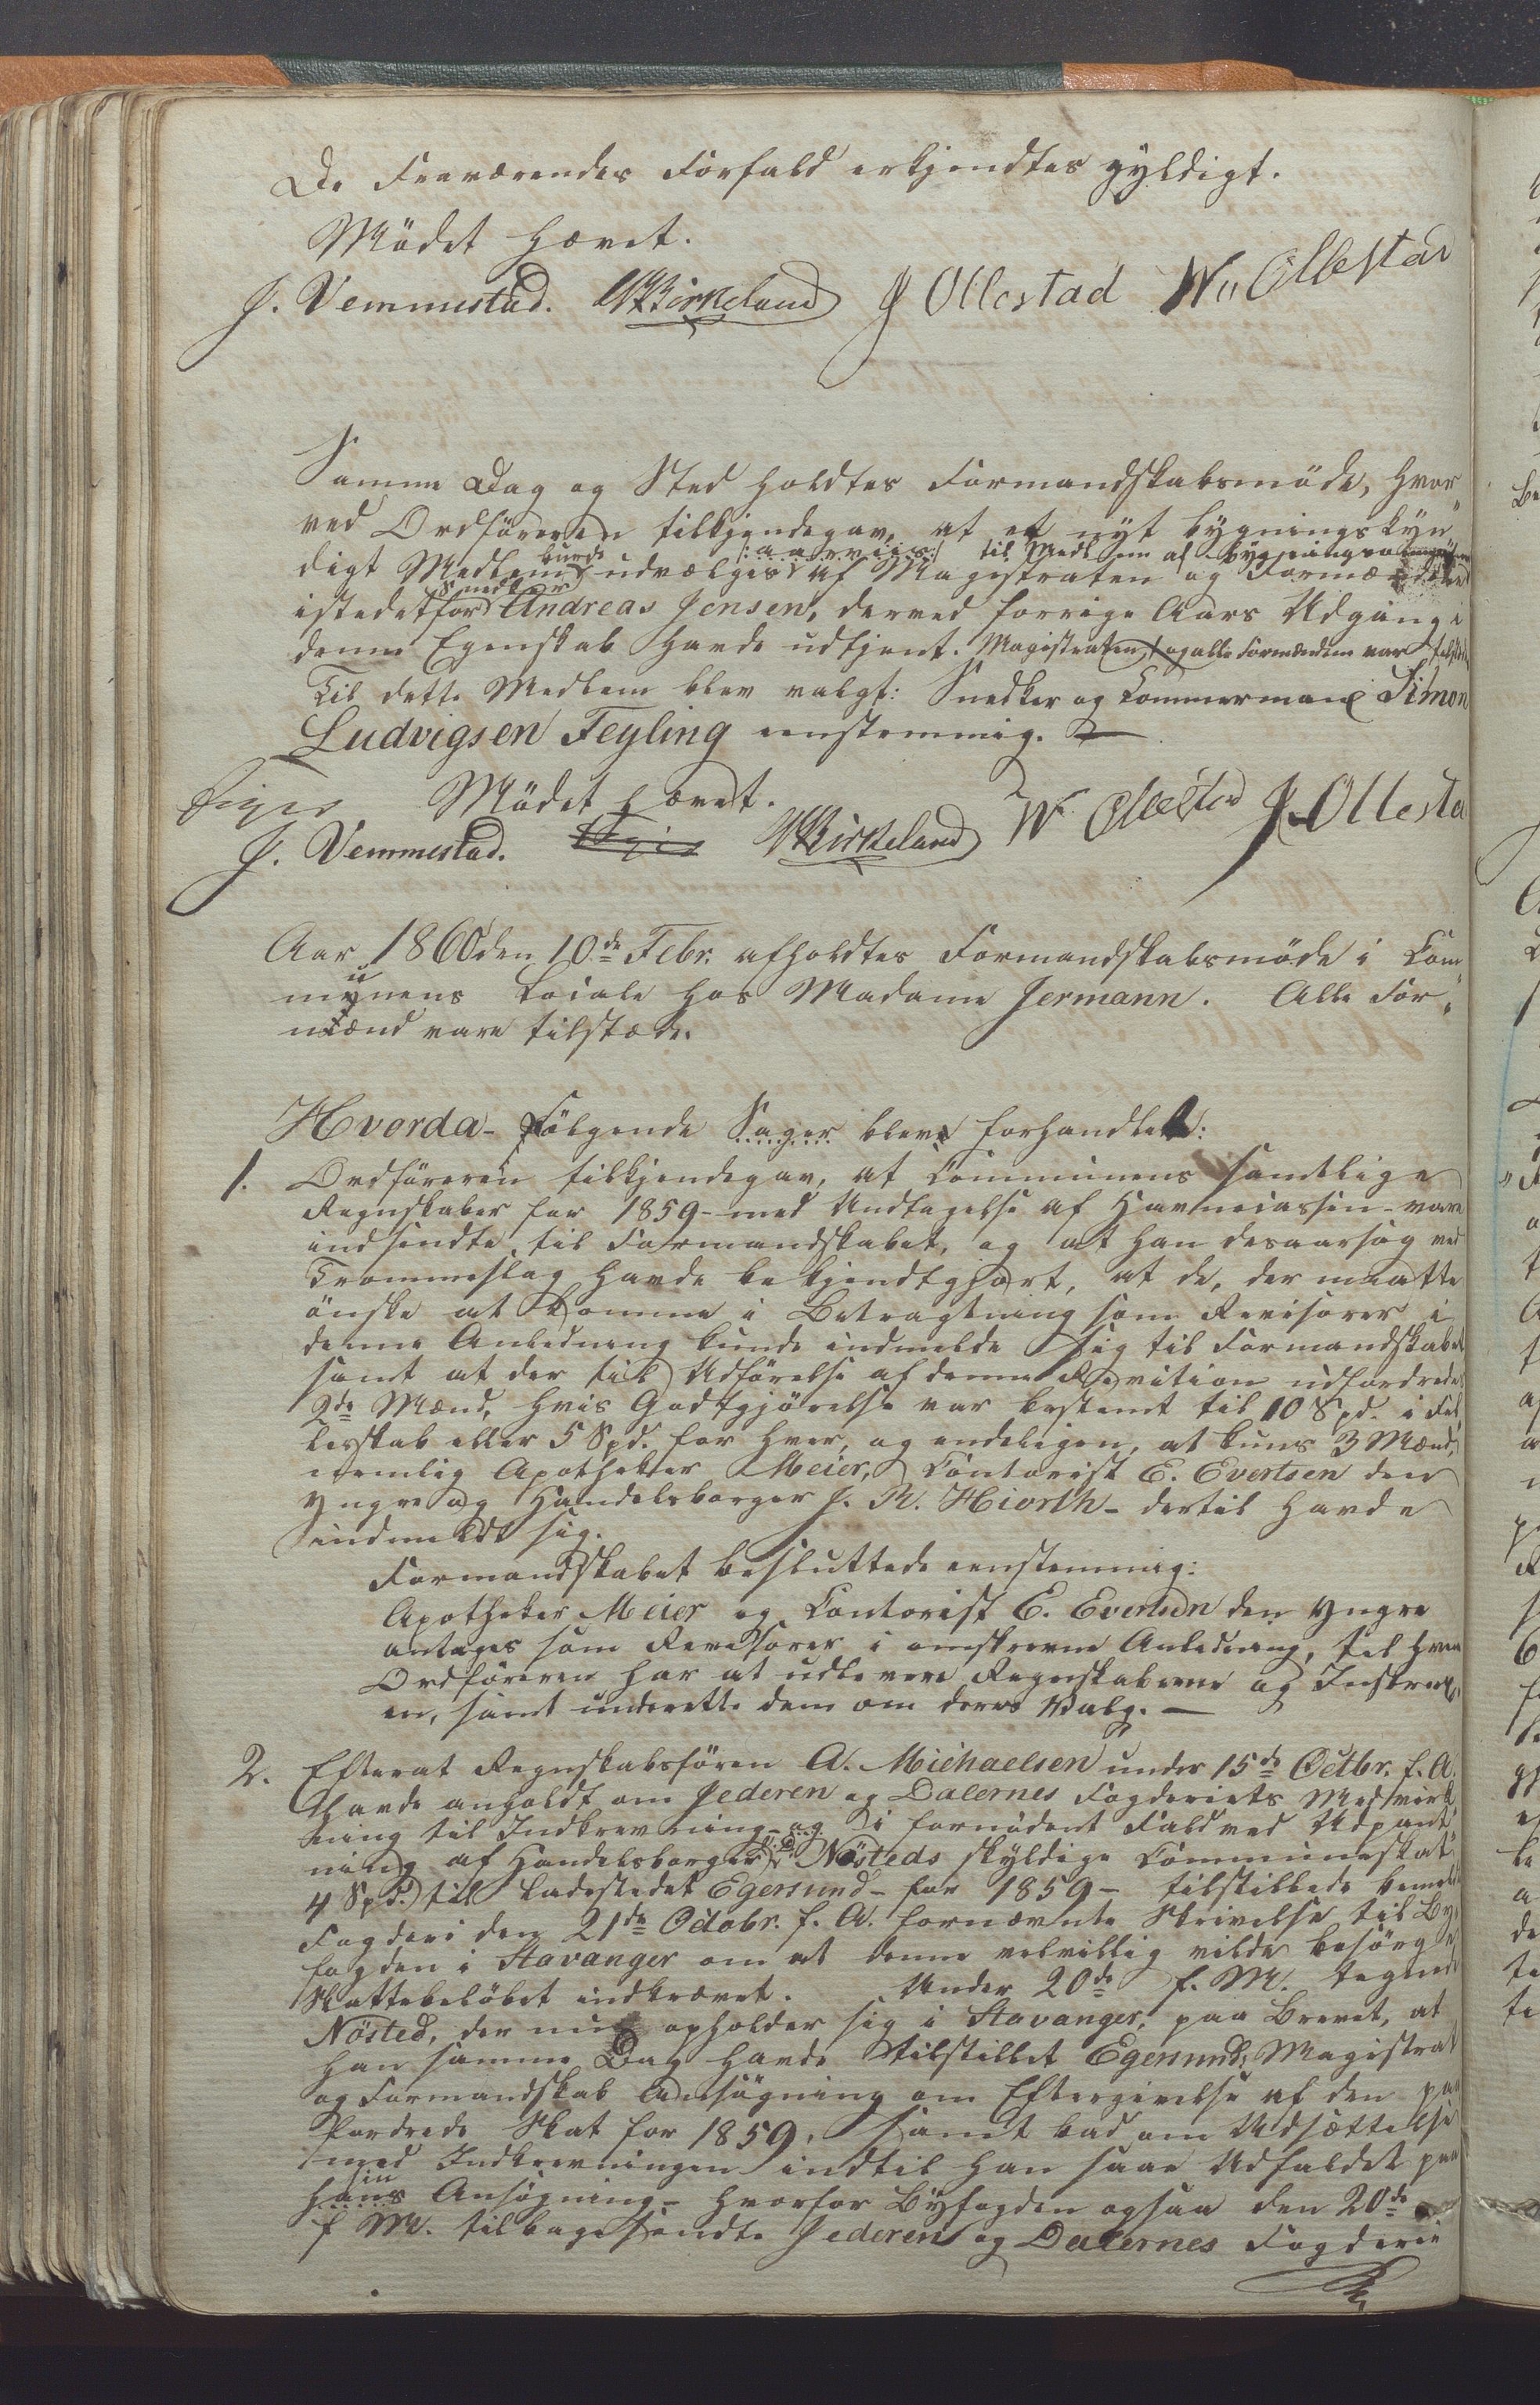 De Fraværendes Forfald erkjendtes gyldigt.
Mødet hævet.
J. Vemmestad. Birkeland J Ollestad W. Ollestad
Samme Dag og Sted holdtes Formandskabsmøde, hvor"
ved Ordføreren tilkjendegav, at et nyt bygningskyn"
digt Medlem burde udvælges |: aarviis :| til Medlem af af Magistraten og Formændene
istedetfor Snedker Andreas Jensen, der ved forrige Aars Udgang i
denne Egenskab havde udtjent. Magistraten og alle Formændene var tilstede
Til dette Medlem blev valgt: Snedker og Tømmermand Simon
Ludvigsen Feyling eenstemmig. —
Mødet hævet.
J. Vemmestad. Birkeland W. Ollestad J. Ollesta
Aar 1860 den 10de Febr. afholdtes Formandskabsmøde i Com"
munens Locale hos Madame Jermann. Alle For"
mænd vare tilstæde.
Hvorda - Følgende Sager bleve forhandlet:
1. Ordføreren tilkjendegav, at Communens samtlige
Regnskaber for 1859 - med Undtagelse af Havnecassen - vare
indsendte til Formandskabet, og at han desaarsag ved
Trommeslag havde bekjendtgjort, at de, der maatte
ønske at komme i Betragtning som Revisorer i
denne Anledning kunde indmelde sig til Formandskabet
samt at der til Udførelse af denne Revition udfordredes
2de Mænd, hvis Godtgjørelse var bestemt til 10 Spd. i Fel"
lesskab eller 5 Spd. for hver, og endeligen, at kuns 3 Mænd,
nemlig Apotheker Meier, Contorist E. Evertsen den
yngre og Handelsborger J. R. Hiorth - dertil havde
indmeldt sig.
Formandskabet besluttede eenstemmig:
Apotheker Meier og Contorist E. Evertsen den yngre
antages som Revisorer i omskrevne Anledning, til hvem
Ordføreren har at udlevere Regnskaberne og
en, samt underrette dem om deres Valg. —
2. Efterat Regnskabsføreren A. Michaelsen under 15de Octbr. f. A.
havde anholdt om Jederen og Dalernes Fogderiets Medvirk"
ning til Indkrevning - og i fornødent Fald ved Udpant"
ning af Handelsborger Nøsteds skyldige Communeskat
4 Spd. til Ladestedet Egersund - for 1859 - tilstillede bemeldte
Fogderi den 21de Octobr. f. A. fornævnte Skrivelse til By"
fogden i Stavanger om at denne velvillig vilde besørge
Skattebeløbet indkrævet. Under 20de f. M. tegnede
Nøsted, der nu opholder sig i Stavanger, paa Brevet, at
han samme Dag havde tilstillet Egersunds Magistrat
og Formandskab Ansøgning om Eftergivelse af den paa
fordrede Skat for 1859, samt bad om Udsættelse
med Indkrevningen indtil han saae Udfaldet paa
sin hans Ansøgning - hvorfor Byfogden ogsaa den 20de
f. M. tilbagesendte Jederen og Dalernes Fogderie